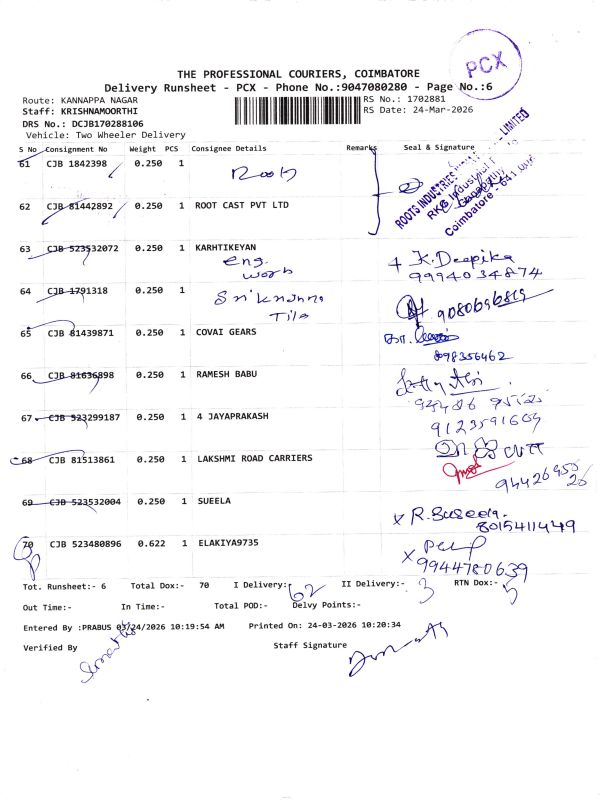 PCX
THE PROFESSIONAL COURIERS, COIMBATORE
Delivery Runsheet - PCX - Phone No.:9047080280 - Page No.:6
Route: KANNAPPA NAGAR RS No.: 1702881
Staff: KRISHNAMOORTHI RS Date: 24-Mar-2026
DRS No.: DCJB170288106
Vehicle: Two Wheeler Delivery
S No Consignment No Weight PCS Consignee Details Remarks Seal & Signature
61 CJB 1842398 0.250 1 Roots
ROOTS INDUSTRIES LIMITED
RKG Industrial
Coimbatore - 641
62 CJB 81442892 0.250 1 ROOT CAST PVT LTD
63 CJB 523532072 0.250 1 KARHTIKEYAN
eng. work
K. Deepika
9994034874
64 CJB 1791318 0.250 1 Srikrishna
Tile
9080696819
65 CJB 81439871 0.250 1 COVAI GEARS
898356462
66 CJB 81636898 0.250 1 RAMESH BABU
67 CJB 523299187 0.250 1 4 JAYAPRAKASH
9123591609
68 CJB 81513861 0.250 1 LAKSHMI ROAD CARRIERS
69 CJB 523532004 0.250 1 SUEELA
x R. Suseela.
8015411449
70 CJB 523480896 0.622 1 ELAKIYA9735
x
9944780639
Tot. Runsheet:- 6 Total Dox:- 70 I Delivery:- 62 II Delivery:- 3 RTN Dox:- 5
Out Time:- In Time:- Total POD:- Delvy Points:-
Entered By :PRABUS 03/24/2026 10:19:54 AM Printed On: 24-03-2026 10:20:34
Verified By Staff Signature